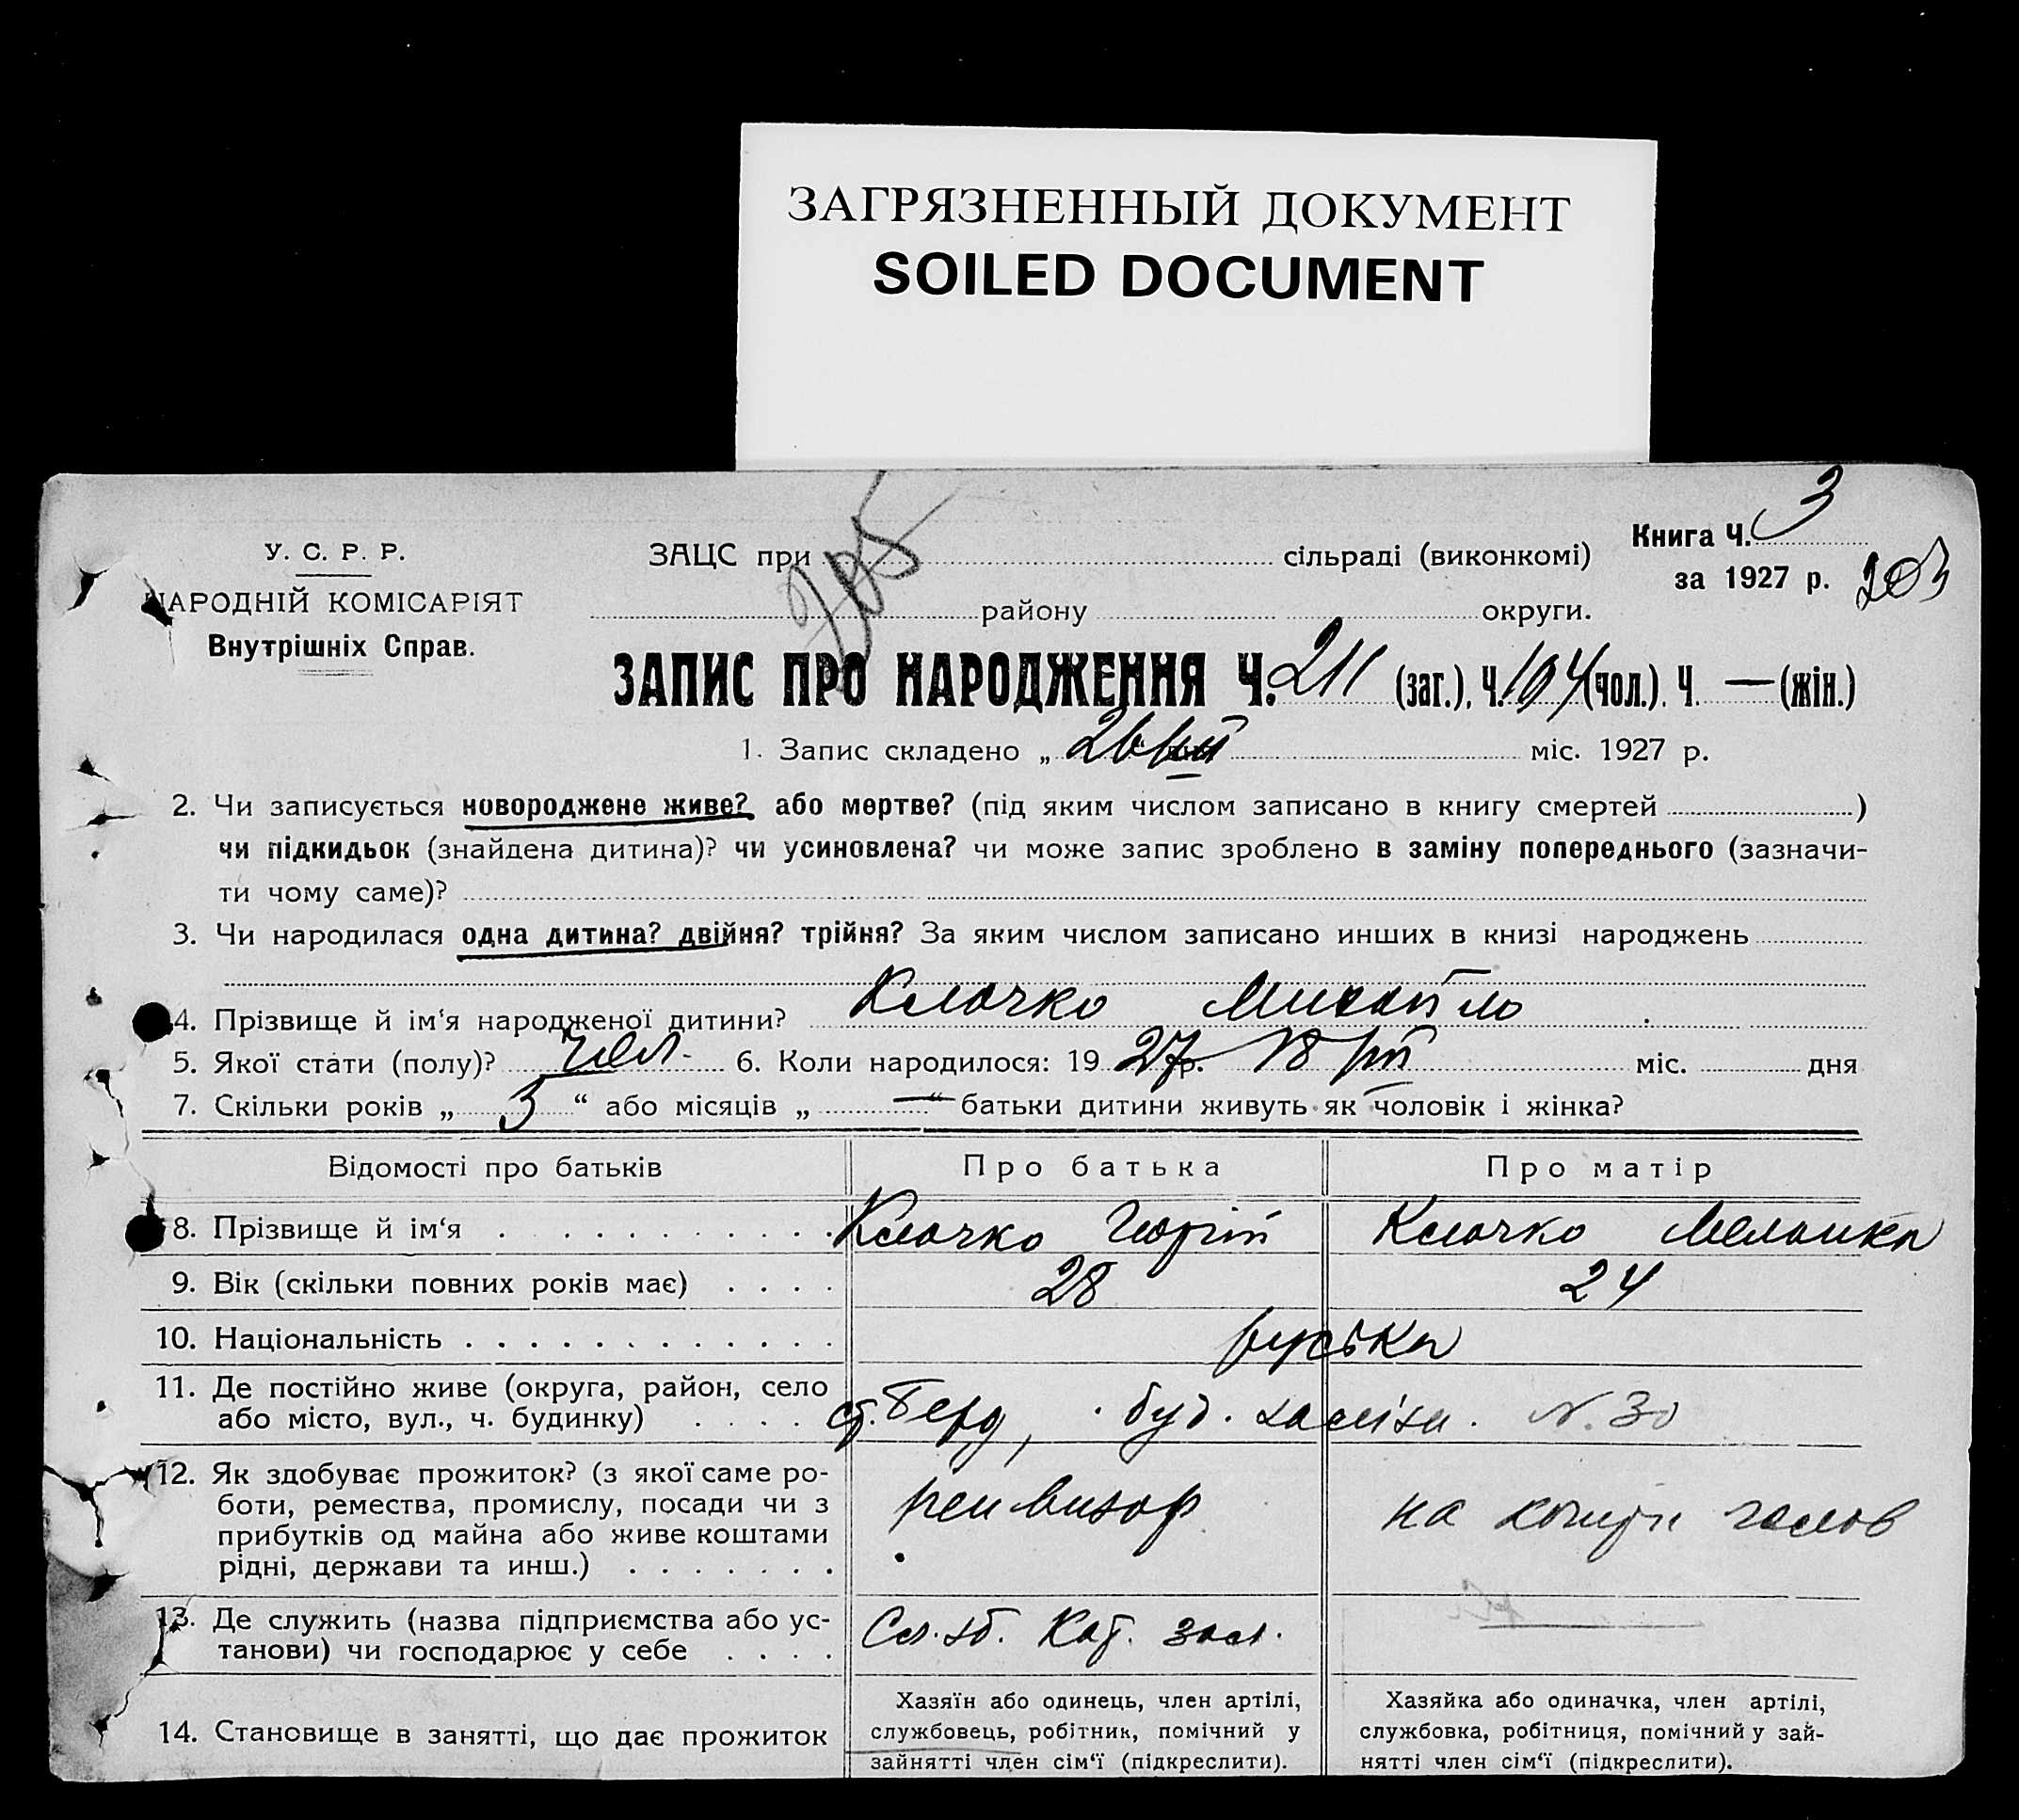 ЗАГРЯЗНЕННЫЙ ДОКУМЕНТ
SOILED DOCUMENT
У. С. Р. Р.
НАРОДНІЙ КОМІСАРІЯТ
Внутрішніх Справ.
205
ЗАЦС при сільраді (виконкомі)
району округи.
Книга Ч. 3
за 1927 р. 203
ЗАПИС ПРО НАРОДЖЕННЯ Ч. 211 (заг.), Ч. 104 (чол.). Ч. — (жін.)
1. Запис складено „ 26 міс. 1927 р.
2. Чи записується новороджене живе? або мертве? (під яким числом записано в книгу смертей )
чи підкидьок (знайдена дитина)? чи усиновлена? чи може запис зроблено в заміну попереднього (зазначи-
ти чому саме)?
3. Чи народилася одна дитина? двійня? трійня? За яким числом записано инших в книзі народжень
4. Прізвище й ім‘я народженої дитини? Клочко Михайло
5. Якої стати (полу)? чол. 6. Коли народилося: 19 27 р. 18 міс. дня
7. Скільки років „ 3 “ або місяців „ — “ батьки дитини живуть як чоловік і жінка?
Відомості про батьків Про батька Про матір
8. Прізвище й ім‘я Клочко Георгій Клочко Меланка
9. Вік (скільки повних років має) 28 24
10. Національність руська
11. Де постійно живе (округа, район, село
або місто, вул., ч. будинку) ст. Берд, буд. заліз. N. 30
12. Як здобуває прожиток? (з якої саме ро-
боти, ремества, промислу, посади чи з
прибутків од майна або живе коштами
рідні, держави та инш.) на кошти
13. Де служить (назва підприємства або ус-
танови) чи господарює у себе Сл. зб. Кат. зал.
14. Становище в занятті, що дає прожиток
Хазяїн або одинець, член артілі,
службовець, робітник, помічний у
зайнятті член сім‘ї (підкреслити).
Хазяйка або одиначка, член артілі,
службовка, робітниця, помічний у зай-
нятті член сім‘ї (підкреслити).